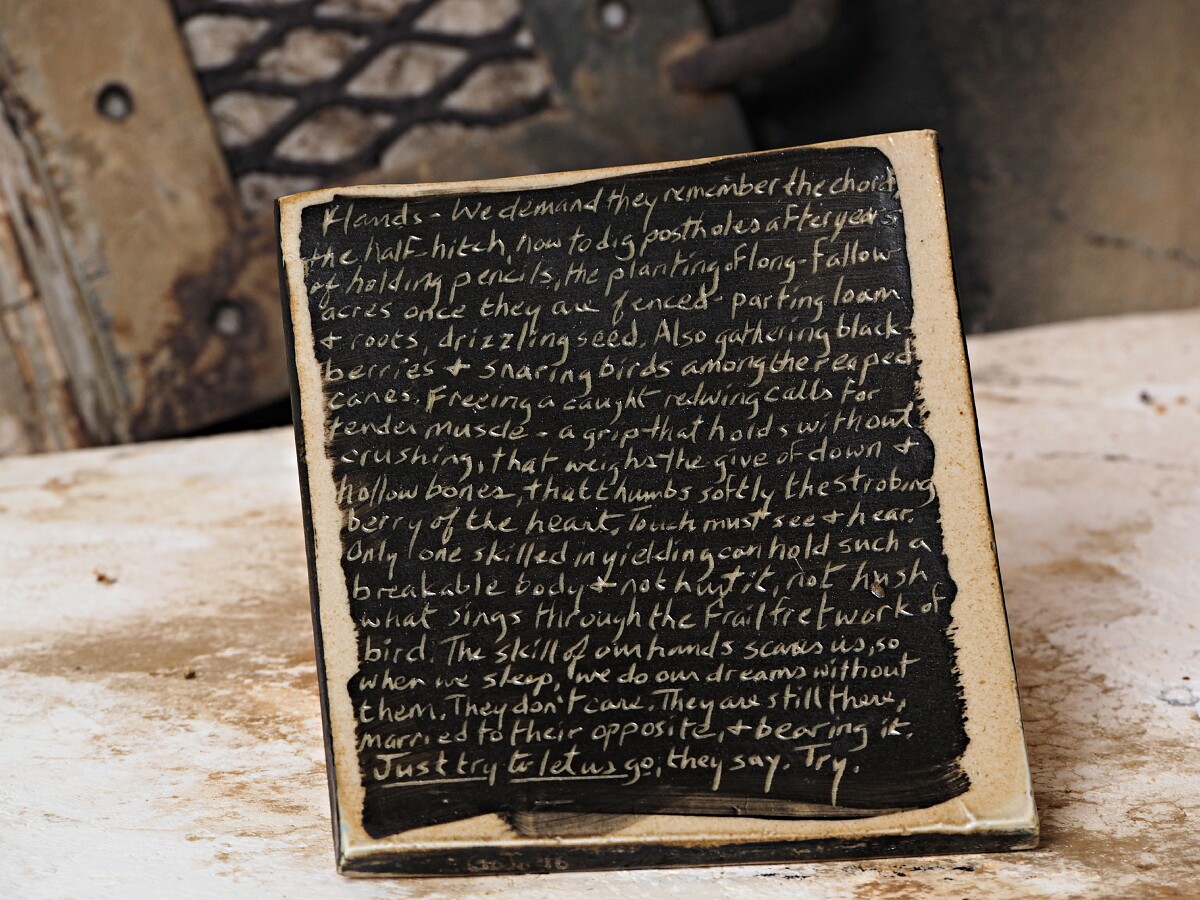 Hands - We demand they remember the chord,
the half-hitch, how to dig postholes after years
of holding pencils, the planting of long-fallow
acres once they are fenced - parting loam
& roots, drizzling seed. Also gathering black-
berries & snaring birds among the reaped
canes. Freeing a caught redwing calls for
tender muscle - a grip that holds without
crushing, that weighs the give of down &
hollow bones, that thumbs softly the strobing
berry of the heart. Touch must see & hear.
Only one skilled in yielding can hold such a
breakable body & not hurt it, not hush
what sings through the frail fretwork of
bird. The skill of our hands scares us, so
when we sleep, we do our dreams without
them. They don't care. They are still there,
married to their opposite, & bearing it.
Just try to let us go, they say. Try.